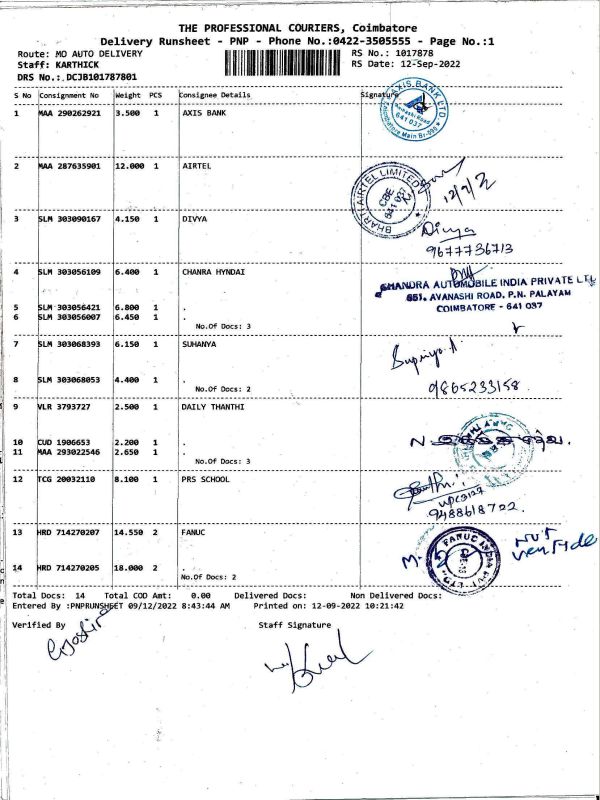 THE PROFESSIONAL COURIERS, Coimbatore
Delivery Runsheet - PNP - Phone No.:0422-3505555 - Page No.:1
Route: MO AUTO DELIVERY RS No.: 1017878
Staff: KARTHICK RS Date: 12-Sep-2022
DRS No.: DCJB101787801
S No Consignment No Weight PCS Consignee Details Signature
1 MAA 290262921 3.500 1 AXIS BANK
AXIS BANK LTD.
Avinashi Road
641 037
Coimbatore Main Br-090
2 MAA 287635901 12.000 1 AIRTEL
BHARTI AIRTEL LIMITED
CBE
641 037
3 SLM 303090167 4.150 1 DIVYA
Divya
9677736713
4 SLM 303056109 6.400 1 CHANRA HYNDAI
CHANDRA AUTOMOBILE INDIA PRIVATE LTD
651, AVANASHI ROAD, P.N. PALAYAM
COIMBATORE - 641 037
5 SLM 303056421 6.800 1 .
6 SLM 303056007 6.450 1 .
No.Of Docs: 3
7 SLM 303068393 6.150 1 SUHANYA
Supriya.A
8 SLM 303068053 4.400 1 .
No.Of Docs: 2
9865233158
9 VLR 3793727 2.500 1 DAILY THANTHI
10 CUD 1906653 2.200 1 .
11 MAA 293022546 2.650 1 .
No.Of Docs: 3
12 TCG 20032110 8.100 1 PRS SCHOOL
9488618722
13 HRD 714270207 14.550 2 FANUC
FANUC INDIA PVT. LTD.
14 HRD 714270205 18.000 2 .
No.Of Docs: 2
Total Docs: 14 Total COD Amt: 0.00 Delivered Docs: Non Delivered Docs:
Entered By :PNPRUNSHEET 09/12/2022 8:43:44 AM Printed on: 12-09-2022 10:21:42
Verified By Staff Signature